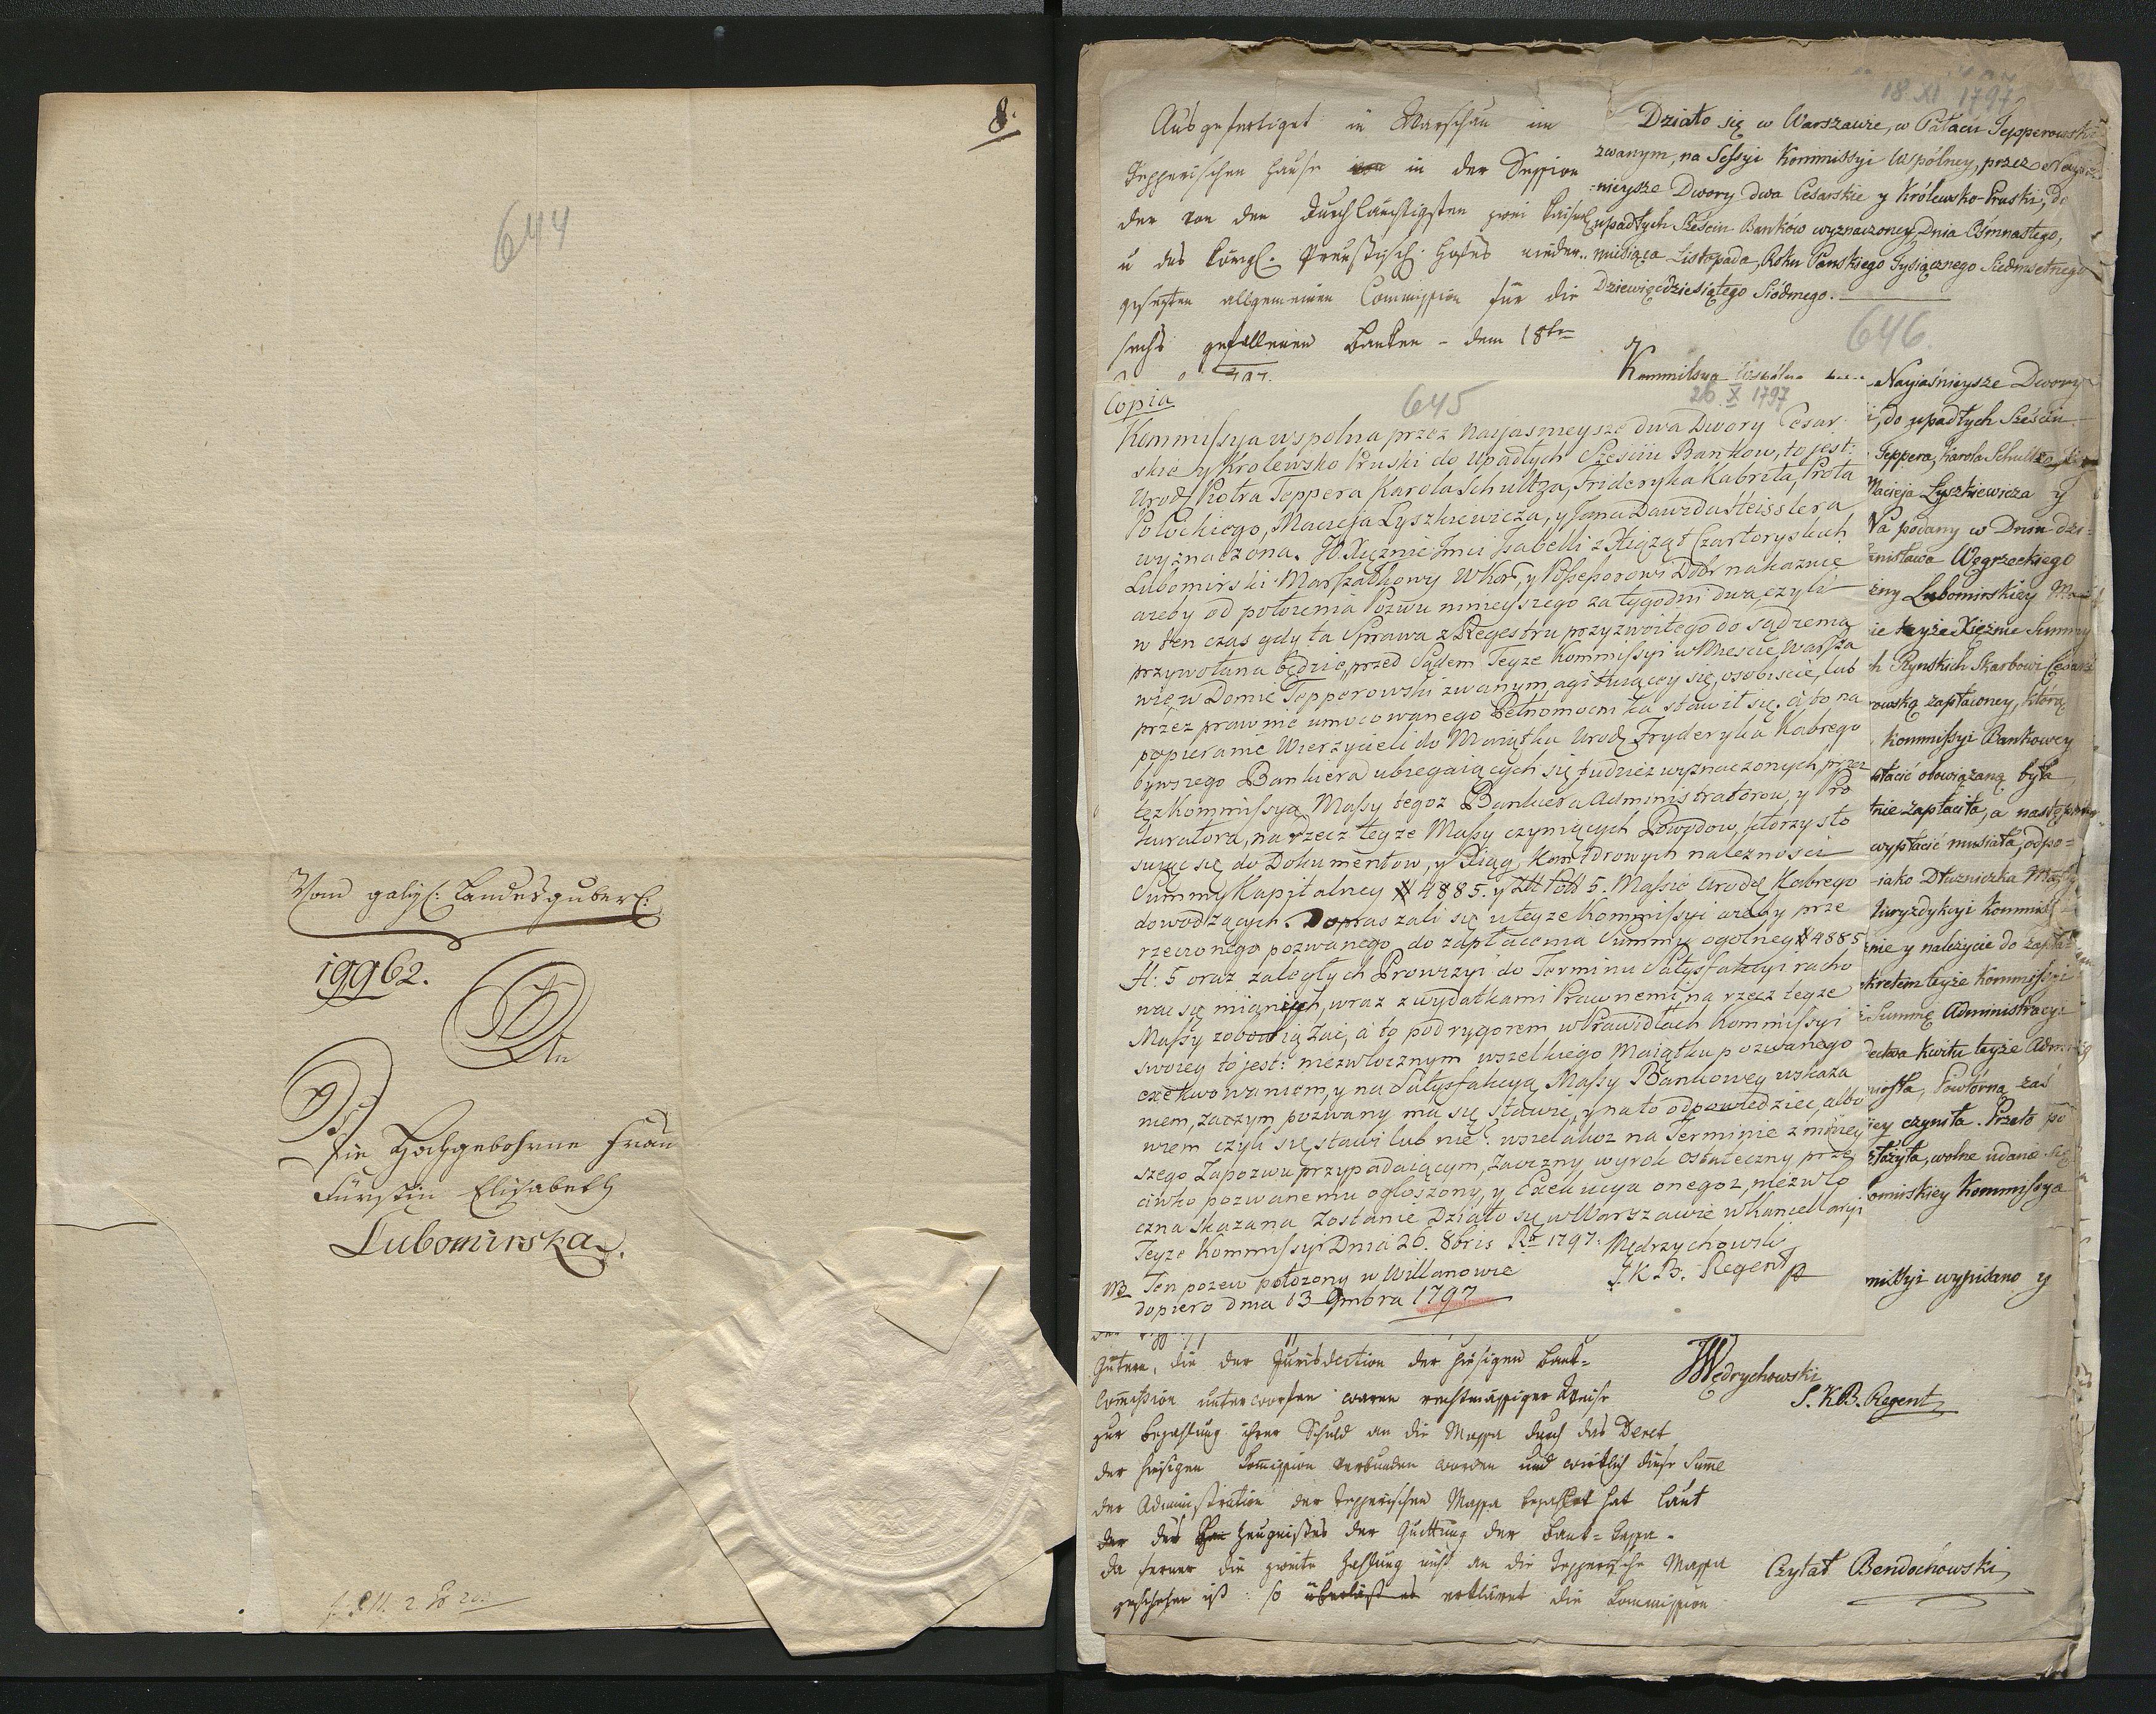 8.
644
Vom galiz: Landesguber:
19962.
An
Die Hochgebohrne Frau
Fürstin Elisabeth
Lubomirska.
18 XI 1797
Ausgefertiget in Warschau im
Tepperischen Hause in der Session
der von den Durchlauchtigsten zwei Kaiserl
u des Königl. Preußisch: Hofes nieder-
gesetzten allgemeinen Commission für die
sechs gefallenen Banken - dem 18ten
Działo się w Warszawie, w Pałacu Tepperowskim
zwanym, na Sessyi Kommissyi Wspólney, przez Nayiaś-
-nieysze Dwory dwa Cesarskie y Królewsko-Pruski, do
upadłych Sześciu Banków wyznaczoney, Dnia Ośmnastego,
miesiąca Listopada, Roku Pańskiego Tysiącznego Siedmsetnego
Dziewięćdziesiątego Siódmego.
646
Kommissya Wspólna
Nayiaśnieysze Dwory
do upadłych Sześciu
Teppera, Karola Schultza
Macieja Łyszkiewicza y
Na podany w Dniu dzi-
Węgrzeckiego
Lubomirskiey
teyże Xiężnie Summy
Rynskich Skarbowi Cesars
zapłaconey, którą
Kommissyi Bankowey
obowiązaną była
zapłaciła, a następnie
wypłacić musiała, odpo-
-iako Dłużniczka Massy
Juryzdykcyi Kommiss
y należycie do zapła-
teyże Kommissyi
Summę Administracyi
Kwitu teyże Admini
Powtórną zaś
czyniła. Przeto po
wolne udanie się
Kommissya
wypisano y
Copia
645
26 X 1797
Kommissya wspolna przez Nayiasnieysze dwa Dwory Cesar
skie y Krolewsko Pruski do Upadłych Sześciu Bankow, to jest:
Urod Piotra Teppera Karola Schultza, Friderika Kabryta, Prota
Potockiego, Macieja Łyszkiewicza, y Jana Dawida Heisslera
wyznaczona. JO Xiężnie Jmci Isabelli z Xiążąt Czartoryskich
Lubomirski Marszałkowy WKor, y Possessorowi Dóbr nakazuie
ażeby od położenia Pozwu ninieyszego za tygodni dwa, czyli
w ten czas gdy ta Sprawa z Regestru przyzwoitego do sądzenia
przywołana będzie, przed Sądem Teyże Kommissyi w Mieście Warsza
wie w Domie Tepperowski zwanym agituiącey się, osobiście, lub
przez prawnie umocowanego Pełnomocnika stawił się. a to na
popieranie Wierzycieli do Maiątku Urod Fryderyka Kabrego
bywszego Bankiera ubiegaiących się tudzież wyznaczonych przez
tęż Kommissyą Massy tegoż Bankiera Administratorow, y Pro
kuratora, na rzecz teyże Massy czyniących Powodow, ktorzy sto
suiąc się do Dokumentow, y Xiąg Kontorowych należności
Summy Kapitalney # 4885. y Zł Pol 5. Massie Urod Kabrego
dowodzących. Dopraszali się u teyże Kommissyi ażeby prze
rzeczonego pozwanego do zapłacenia Summy ogolney # 4885
fl: 5 oraz zaległych Prowizyi do Terminu Satysfakcyi racho
wać się mianych, wraz z wydatkami Prawnemi, na rzecz teyże
Massy zobowiązać, a to pod rygorem w Prawidłach Kommissyi
swoiey to jest: niezwłocznym wszelkiego Maiątku pozwanego
exekwowaniem, y na Satysfakcyą Massy Bankowey wskaza
niem, zaczym pozwany ma się stawić, y na to odpowiedzieć, albo
wiem czyli się stawi lub nie: wszelakoż na Terminie z niniey
szego Zapozwu przypadaiącym, Zaoczny wyrok ostateczny prze
ciwko pozwanemu ogłoszony, y Exekucya onegoż, niezwło
czna Skazana Zostanie Działo się w Warszawie w Kancellaryi
Teyże Kommissyi Dnia 26. 8bris Ru 1797. Mędrzychowski
J. K. B. Regent
NB Ten pozew położony w Willanowie
dopiero dnia 13 9mbra 1797
Gütern, die der Jurisdiction der hiesigen Bank-
Commission unterworfen waren rechtmässiger Weise
zur Bezahlung ihrer Schuld an die Massa durch das Decret
der hiesigen Commission verbunden worden und wirklich diese Summe
der Administration der Tepperischen Massa bezahlet hat laut
der des Zeugnisses der Quittung der Bank-Cassa.
da ferner die zweite Zahlung nicht an die Tepperische Massa
geschehen ist: so überläßt es erkläret die Commission
Mędrychowski
S. K. B. Regent
Czytał Bendochowski